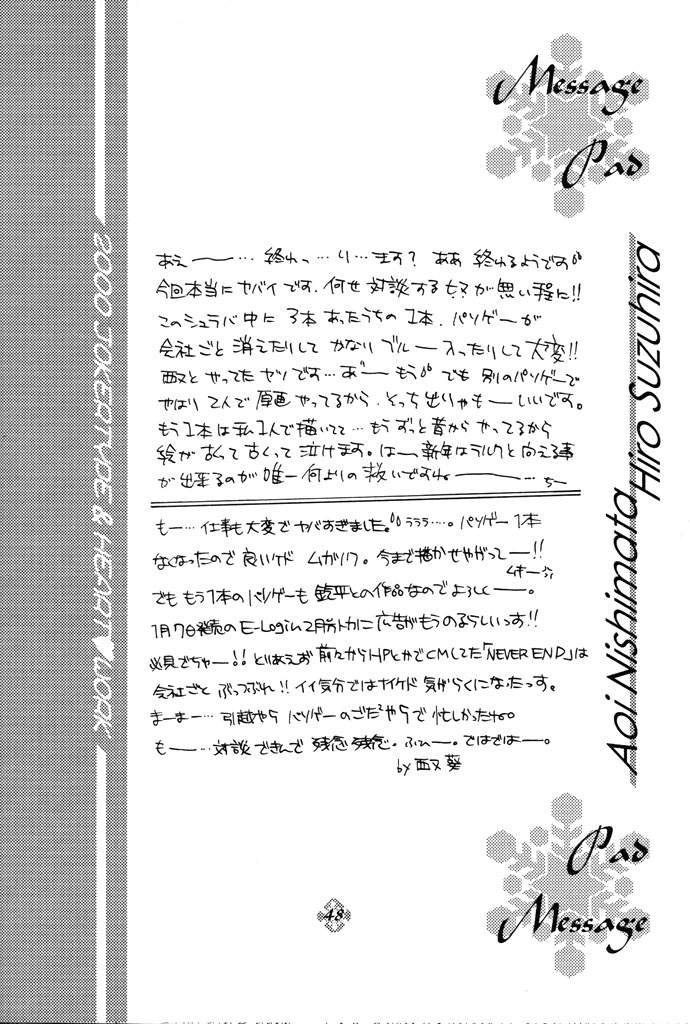 Message
Pad
あえー…終わっ…り…ます? ああ 終わるようです
今回本当にヤバイです. 何せ 対談するヒマが無い程に!!
このシュラバ中に 3本 あったうちの 1本. パソゲーが
会社ごと 消えたりして かなりブルー入ったりして 大変!!
西又と やってたヤツです…あ"ー もう でも 別のパソゲーで
やはり 2人で 原画 やってるから. そっち出りゃもーいいです。
もう1本は私1人で描いてて…もう ずっと昔から やってるから
絵が古くて古くって 泣けます。はー、新年は
と向える事
が出来るのが 唯一 何よりの 救いですねー…
もー…仕事も大変でヤバすぎました。 うううう…。パソゲー 1本
なくなったので 良いケド ムカツク。今まで描かせやがってー!!
ムキー
でも もう1本のパソゲーも 鈴平との作品なのでよろしくー。
1月7日発売の E-Login 2月号トカに 広告がもうのるらしいっす!!
必見でちゃー!! とりあえず 前々からHPとかでCMしてた「NEVER END」は
会社ごと ぶっつぶれ!! イイ気分ではナイケド 気がらくになたっす。
まーまー…引越やら パソゲーのごたごたやらで 忙しかったね。
もー…対談できんで 残念 残念。ふひー。ではではー。
by 西又 葵
Hiro Suzuhira
Aoi Nishimata
2000 JOKERTYPE & HEART♥WORK
48
Pad
Message